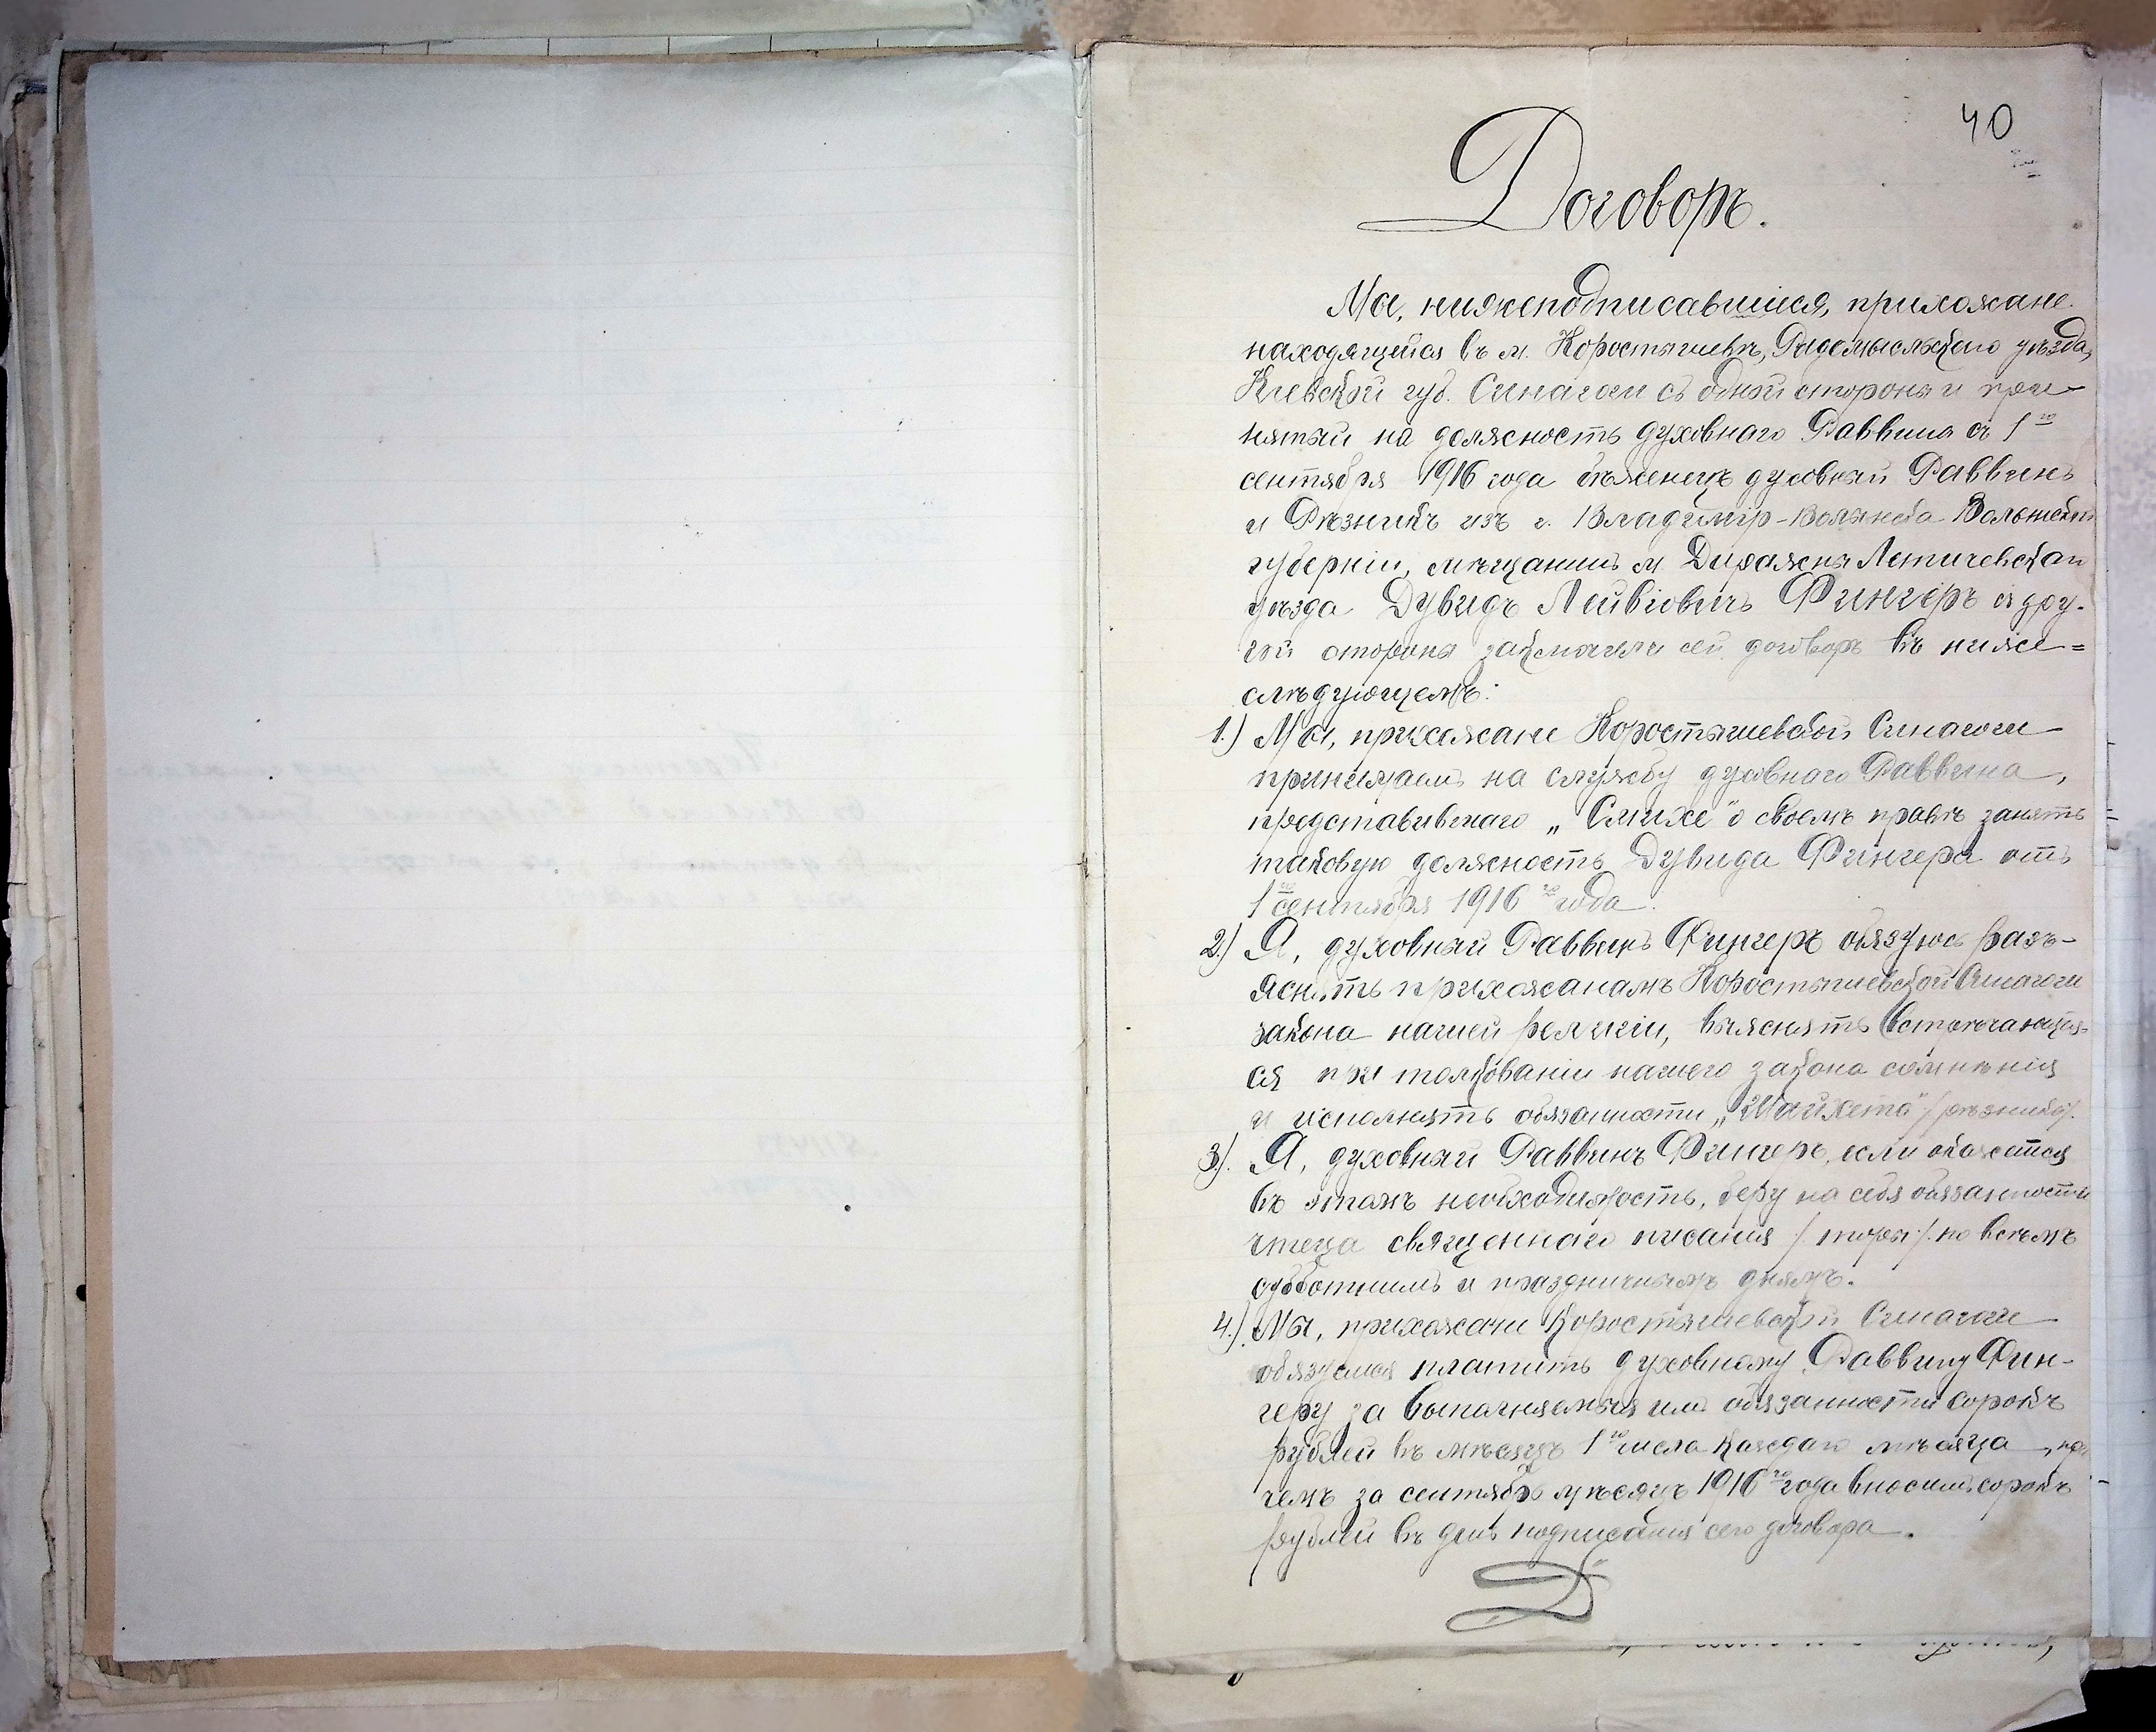 40
Договоръ.
Мы, нижеподписавшіеся, прихожане
находящейся въ м. Коростышевѣ, Радомысльскаго уѣзда,
Кіевской губ. Синагоги съ одной стороны и при-
нятый на должность духовнаго Раввина съ 1го
сентября 1916 года бѣженецъ духовный Раввинъ
и Рѣзникъ изъ г. Владиміръ-Волынска Волынской
губерніи, мѣщанинъ м. Деражни Летичевскаго
уѣзда Дувидъ Лейбовичъ Фингеръ съ дру-
гой стороны заключили сей договоръ въ ниже=
слѣдующемъ:
1.) Мы, прихожане Коростышевской Синагоги
принимаемъ на службу духовнаго Раввина,
представившаго „Смихе" о своемъ правѣ занять
таковую должность Дувида Фингера отъ
1го сентября 1916го года.
2.) Я, духовный Раввинъ Фингеръ обязуюсь разъ-
яснять прихожанамъ Коростышевской Синагоги
закона нашей религіи, выяснять встрѣчающія-
ся при толкованіи нашего закона сомнѣнія
и исполнять обязанности „Шойхета" /рѣзника/.
3.) Я, духовный Раввинъ Фингеръ, если окажется
въ этомъ необходимость, беру на себя обязанности
чтеца священнаго писанія /.торы./ по всѣмъ
субботнимъ и праздничнымъ днямъ.
4.) Мы, прихожане Коростышевской Синагоги
обязуемся платить духовному Раввину Фин-
геру за выполняемыя имъ обязанности сорокъ
рублей въ мѣсяцъ 1го числа каждаго мѣсяца, при
чемъ за сентябрь мѣсяцъ 1916го года вносимъ сорокъ
рублей въ день подписанія сего договора.